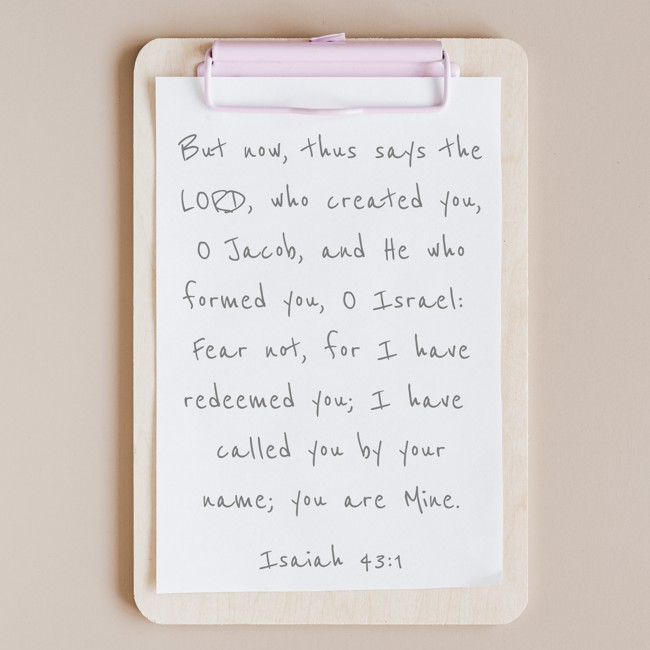 But now, thus says the
LORD, who created you,
O Jacob, and He who
formed you, O Israel:
Fear not, for I have
redeemed you; I have
called you by your
name; you are Mine.
Isaiah 43:1